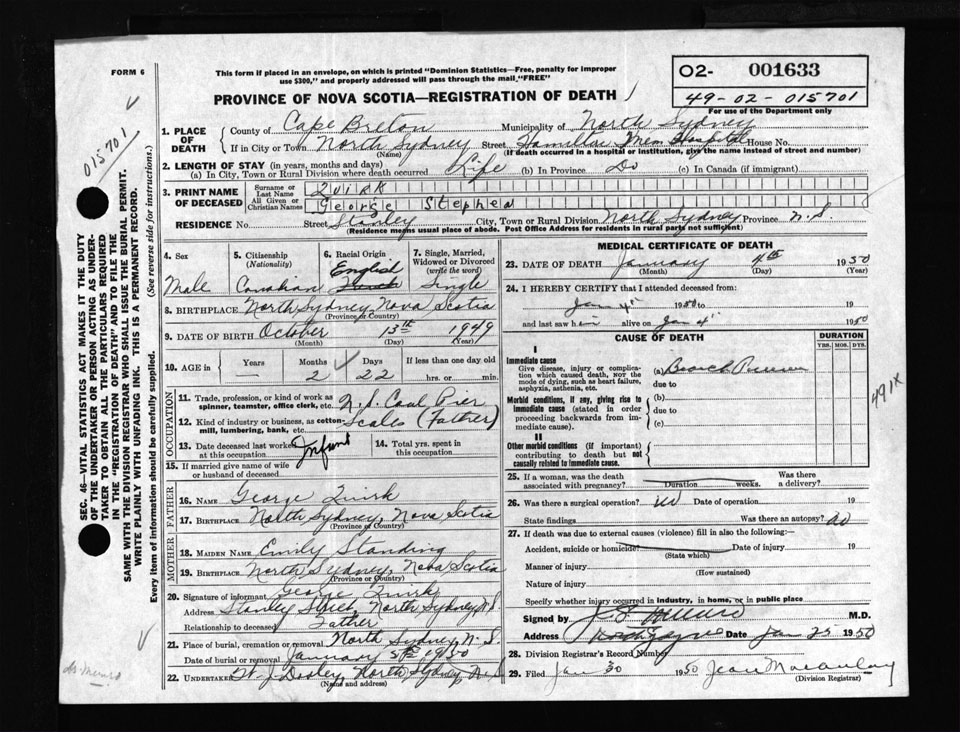 FORM 6
This form if placed in an envelope, on which is printed "Dominion Statistics—Free, penalty for improper
use $300," and properly addressed will pass through the mail "FREE"
PROVINCE OF NOVA SCOTIA—REGISTRATION OF DEATH
O2- 001633
49-02-015701
For use of the Department only
015701
SEC. 46—VITAL STATISTICS ACT MAKES IT THE DUTY
OF THE UNDERTAKER OR PERSON ACTING AS UNDER-
TAKER TO OBTAIN ALL THE PARTICULARS REQUIRED
IN THE "REGISTRATION OF DEATH" AND TO FILE THE
SAME WITH THE DIVISION REGISTRAR WHO SHALL ISSUE THE BURIAL PERMIT.
WRITE PLAINLY WITH UNFADING INK. THIS IS A PERMANENT RECORD.
Every item of information should be carefully supplied. (See reverse side for instructions.)
1. PLACE OF DEATH County of Cape Breton Municipality of North Sydney
If in City or Town North Sydney Street Hamilton Mem Hospital House No.
(Name) (If death occurred in a hospital or institution, give the name instead of street and number)
2. LENGTH OF STAY (in years, months and days)
(a) In City, Town or Rural Division where death occurred Life (b) In Province Do (c) In Canada (if immigrant)
3. PRINT NAME OF DECEASED Surname or Last Name Quirk
All Given or Christian Names George Stephen
RESIDENCE No. Street Stanley City, Town or Rural Division North Sydney Province N.S.
(Residence means usual place of abode. Post Office Address for residents in rural parts not sufficient)
4. Sex Male
5. Citizenship (Nationality) Canadian
6. Racial Origin English
7. Single, Married, Widowed or Divorced (write the word) Single
8. BIRTHPLACE North Sydney, Nova Scotia
(Province or Country)
9. DATE OF BIRTH October 13th 1949
(Month) (Day) (Year)
10. AGE in Years Months Days If less than one day old
2 22 hrs. or min.
OCCUPATION
11. Trade, profession, or kind of work as spinner, teamster, office clerk, etc. N.S. Coal Pier
12. Kind of industry or business, as cotton-mill, lumbering, bank, etc. Scalls (Father)
13. Date deceased last worked at this occupation Infant
14. Total yrs. spent in this occupation
15. If married give name of wife or husband of deceased
FATHER
16. NAME George Quirk
17. BIRTHPLACE North Sydney, Nova Scotia
(Province or Country)
MOTHER
18. MAIDEN NAME Emily Standing
19. BIRTHPLACE North Sydney, Nova Scotia
(Province or Country)
20. Signature of informant George Quirk
Address Stanley Street, North Sydney, N.S.
Relationship to deceased Father
21. Place of burial, cremation or removal North Sydney, N.S.
Date of burial or removal January 5th 1950
22. UNDERTAKER W. J. Dooley, North Sydney, N.S
(Name and address)
MEDICAL CERTIFICATE OF DEATH
23. DATE OF DEATH January 4th 1950
(Month) (Day) (Year)
24. I HEREBY CERTIFY that I attended deceased from:
Jan 4th 1950 to 19
and last saw him alive on Jan 4th 1950
CAUSE OF DEATH DURATION
YRS. MOS. DYS.
I
Immediate cause
Give disease, injury or complica-
tion which caused death, NOT the
mode of dying, such as heart failure,
asphyxia, asthenia, etc.
(a) Bronch Pneum
due to
Morbid conditions, if any, giving rise to
immediate cause (stated in order
proceeding backwards from im-
mediate cause).
(b)
due to
(c)
II
Other morbid conditions (if important)
contributing to death but not
causally related to immediate cause.
491X
25. If a woman, was the death associated with pregnancy? Duration weeks. Was there a delivery?
26. Was there a surgical operation? no Date of operation 19
State findings Was there an autopsy? no
27. If death was due to external causes (violence) fill in also the following:—
Accident, suicide or homicide? Date of injury 19
(State which)
Manner of injury
(How sustained)
Nature of injury
Specify whether injury occurred in industry, in home, or in public place
Signed by Munro M.D.
Address North Sydney Date Jan 25 1950
28. Division Registrar's Record Number
29. Filed Jan 30 1950 Jean Macaulay
(Division Registrar)
Dr Munro